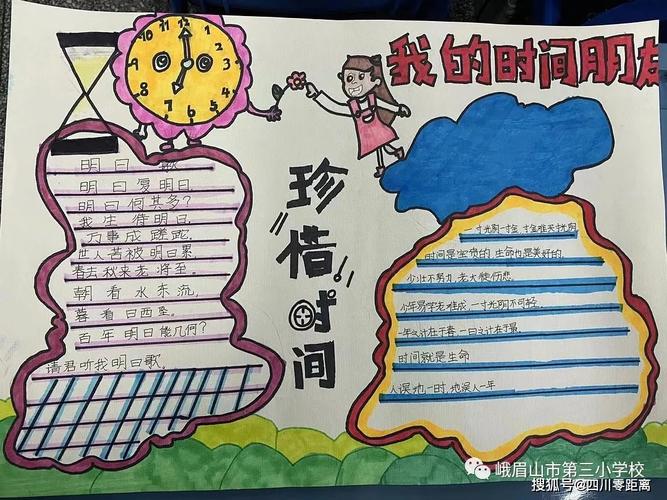 我的时间朋友
12
1
2
3
4
5
6
7
8
9
10
11
明日歌
明日复明日,
明日何其多?
我生待明日,
万事成蹉跎.
世人苦被明日累
春去秋来老将至.
朝看水东流,
暮看日西坠.
百年明日能几何?
请君听我明日歌.
珍惜时间
一寸光阴一寸金,寸金难买寸光阴
时间是宝贵的,生命也是美好的.
少壮不努力,老大徒伤悲.
少年易学老难成,一寸光阴不可轻.
一年之计在于春,一日之计在于晨.
时间就是生命
人误地一时,地误人一年
峨眉山市第三小学校
搜狐号@四川零距离